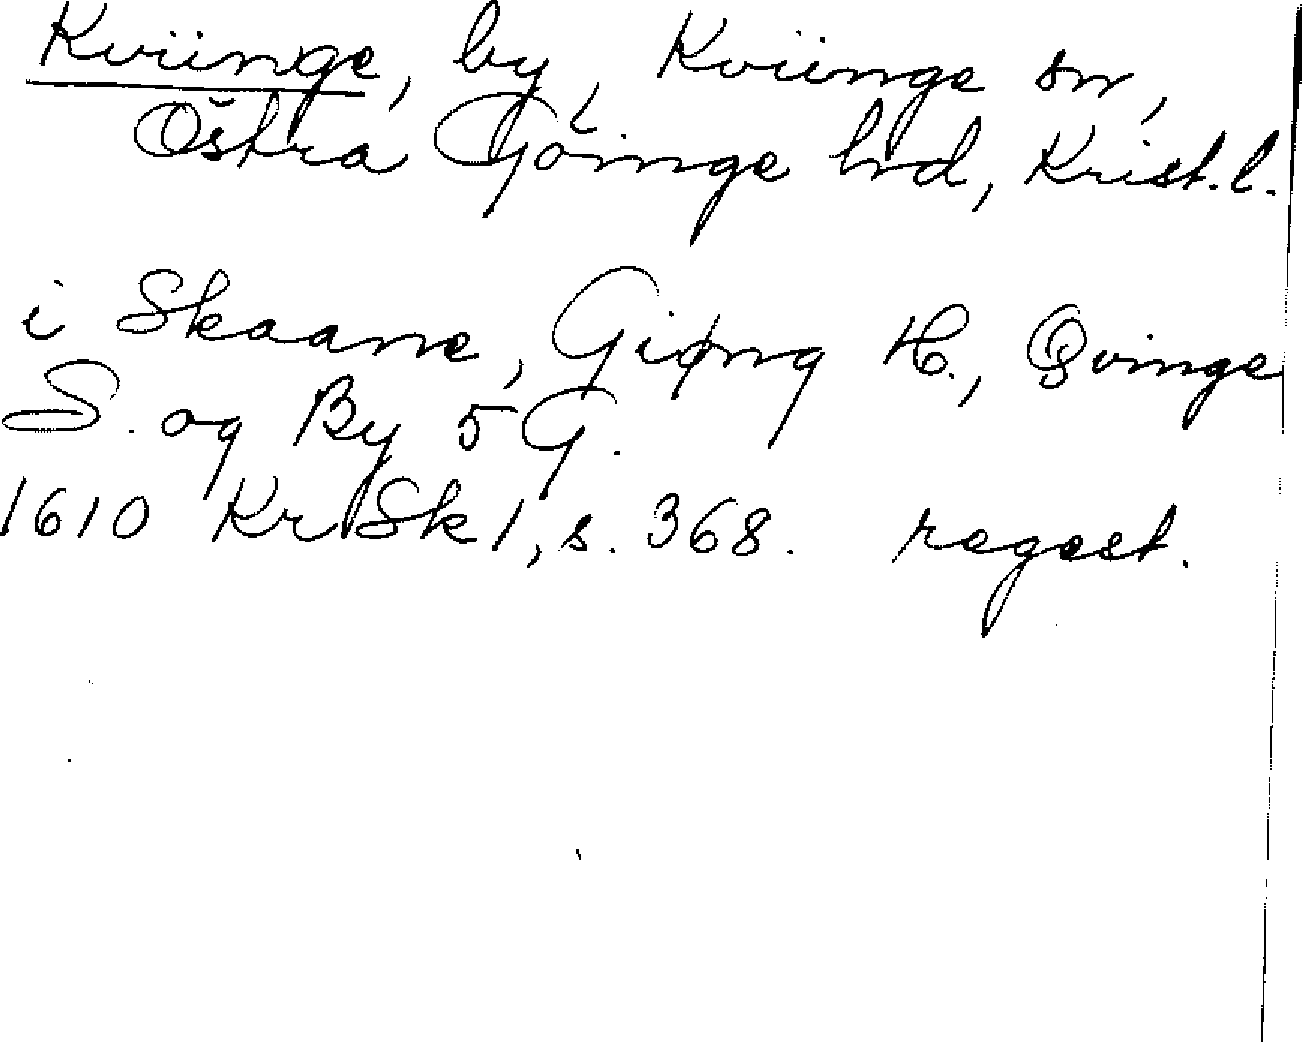 Kviinge, by, Kviinge sn,
Östra Göinge hrd, Krist.l.
i Skaane, Giøng H., Qvinge
S. og By 5 G.
1610 KrSk 1, s. 368. regest.